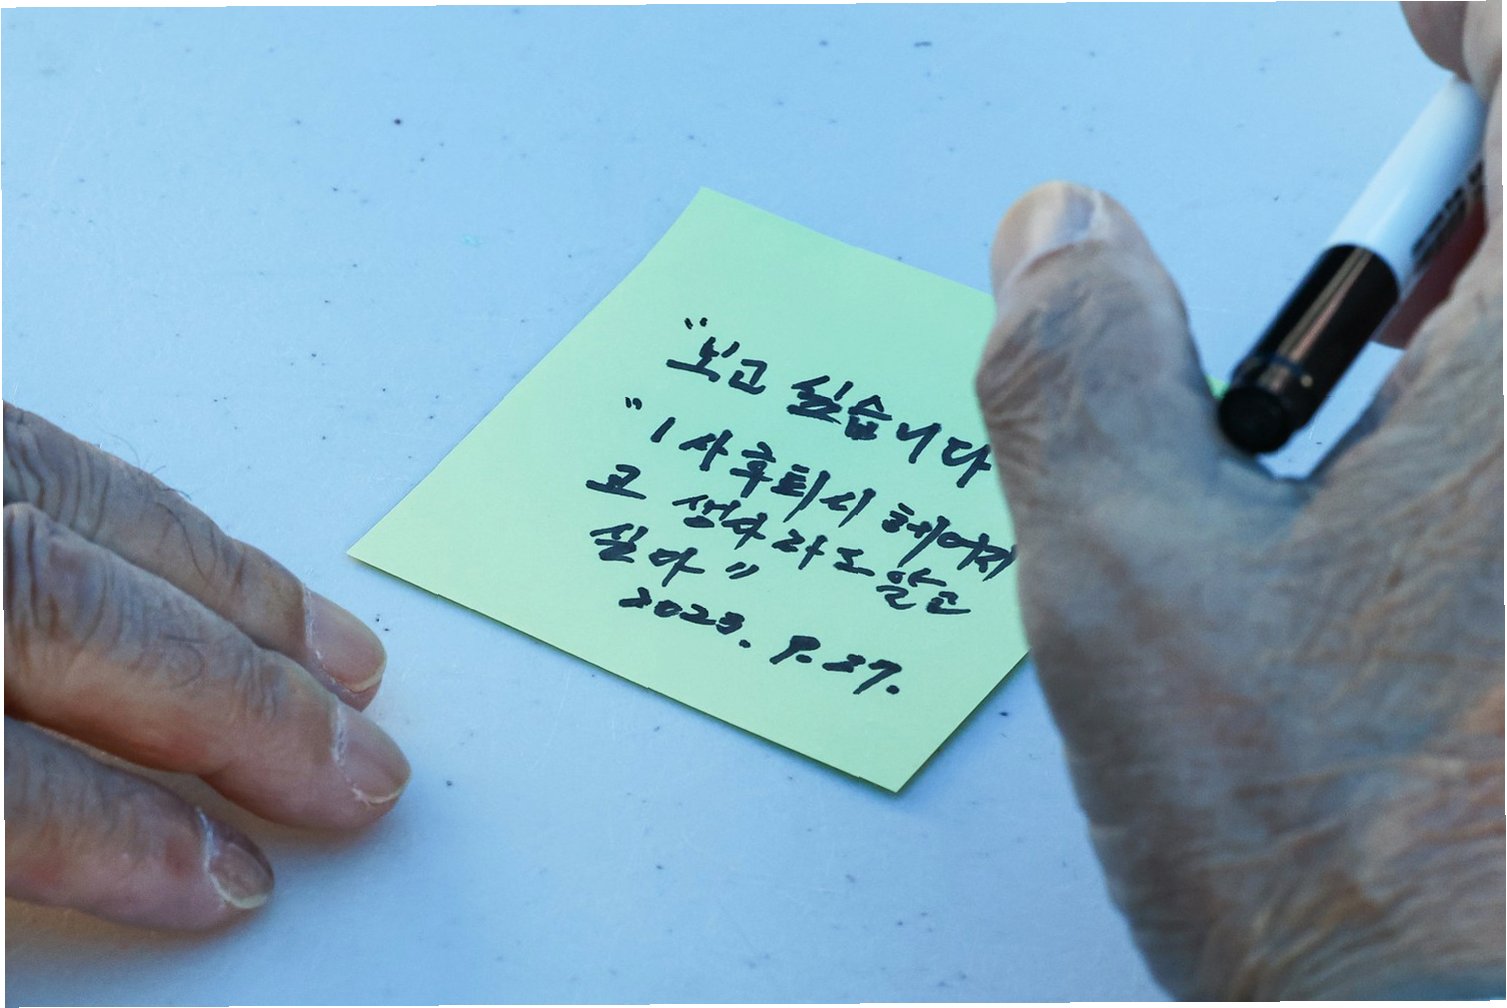 "보고 싶습니다
" 1사후퇴시 헤어지
고 생사라도 알고
싶다"
2023. 9. 27.